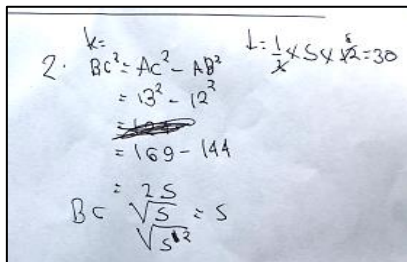 k=
2. BC² = AC² - AB²
= 13² - 12²
= 169 - 144
= 25
BC √5 = 5
√5²
L = 1/2 x 5 x 12 = 30